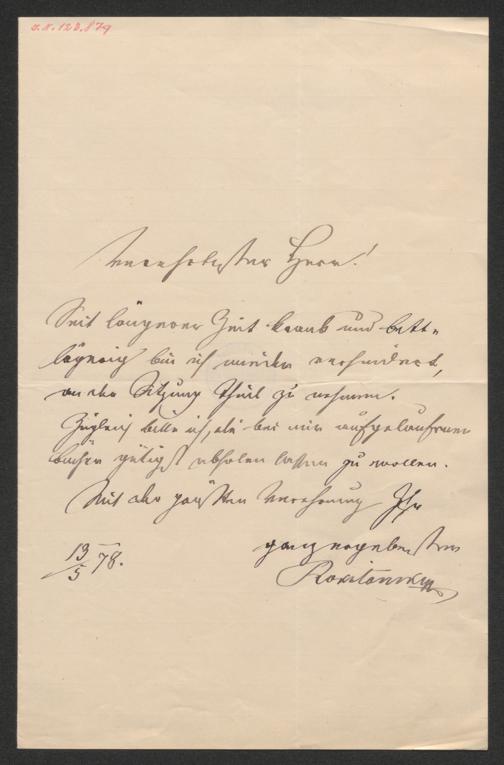 I.N. 123.879
Verehrtester Herr!
Seit längerer Zeit krank und bett=
lägerig bin ich wieder verhindert,
an der Sitzung Theil zu nehmen.
Zugleich bitte ich, die bei mir aufgelaufenen
Bücher gütigst abholen lassen zu wollen.
Mit der größten Verehrung Ihr
ganz ergebenster
13/5 78.
Rokitansky